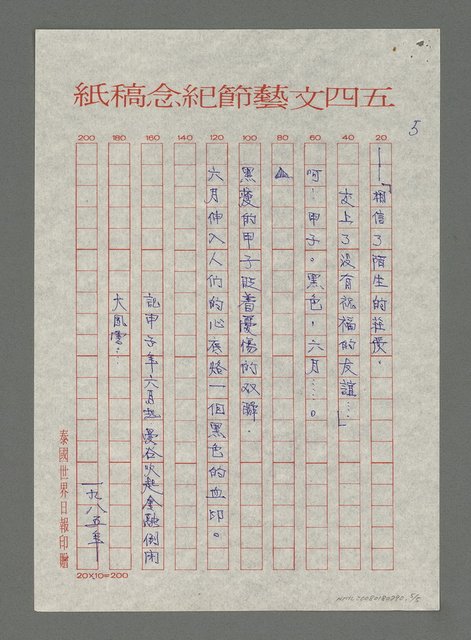 五四文藝節紀念稿紙
5
20
40
60
80
100
120
140
160
180
200
——「相信了陌生的莊優，
交上了沒有祝福的友誼…」
呵！甲子。黑色，六月……。
黑痩的甲子眨着憂傷的双瞬．
六月伸入人們的心底烙一個黑色的血印。
記甲子年六月起曼谷吹起金融倒閉
大風雲…
一九八五年
泰國世界日報印贈
20×10=200
NMTL20080180290. 5/5